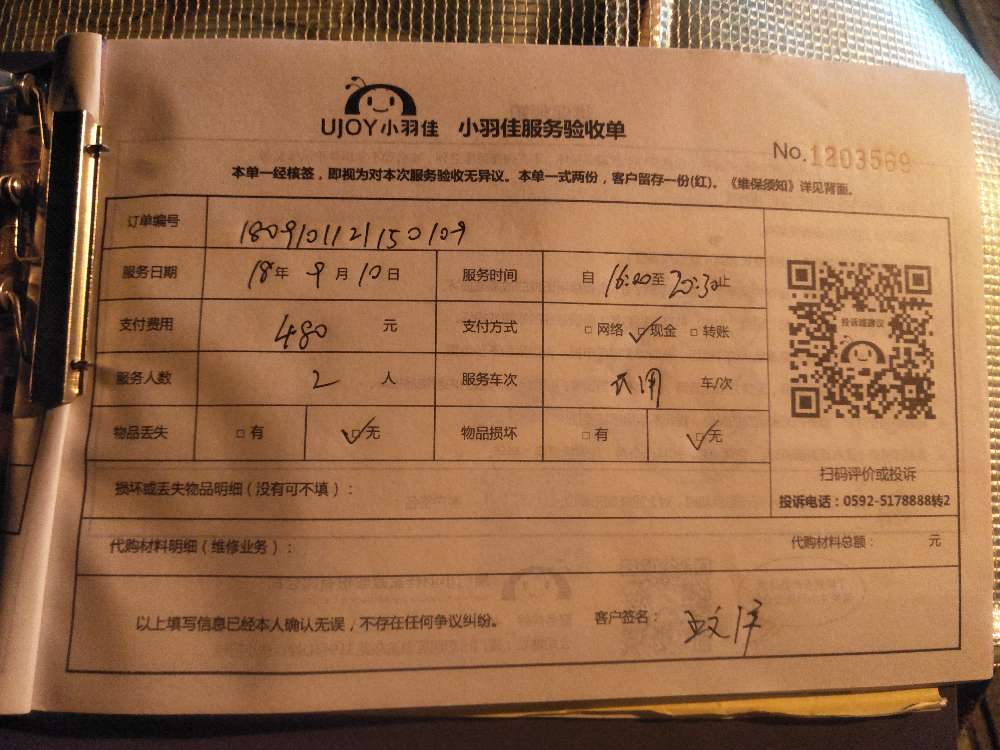 UJOY小羽佳 小羽佳服务验收单
No.1203569
本单一经核签，即视为对本次服务验收无异议。本单一式两份，客户留存一份(红)。《维保须知》详见背面。
订单编号
服务日期 18年 9月 10日 服务时间 自 16:00至 20:30止
支付费用 480 元 支付方式 □ 网络 ☑现金 □ 转账
服务人数 2 人 服务车次 车/次
物品丢失 □ 有 ☑无 物品损坏 □ 有 ☑无
投诉或建议
扫码评价或投诉
投诉电话：0592-5178888转2
损坏或丢失物品明细（没有可不填）：
代购材料明细（维修业务）： 代购材料总额： 元
以上填写信息已经本人确认无误，不存在任何争议纠纷。 客户签名：